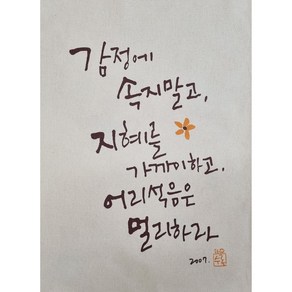 감정에
속지말고,
지혜를
가까이하고,
어리석음은
멀리하라
2007.